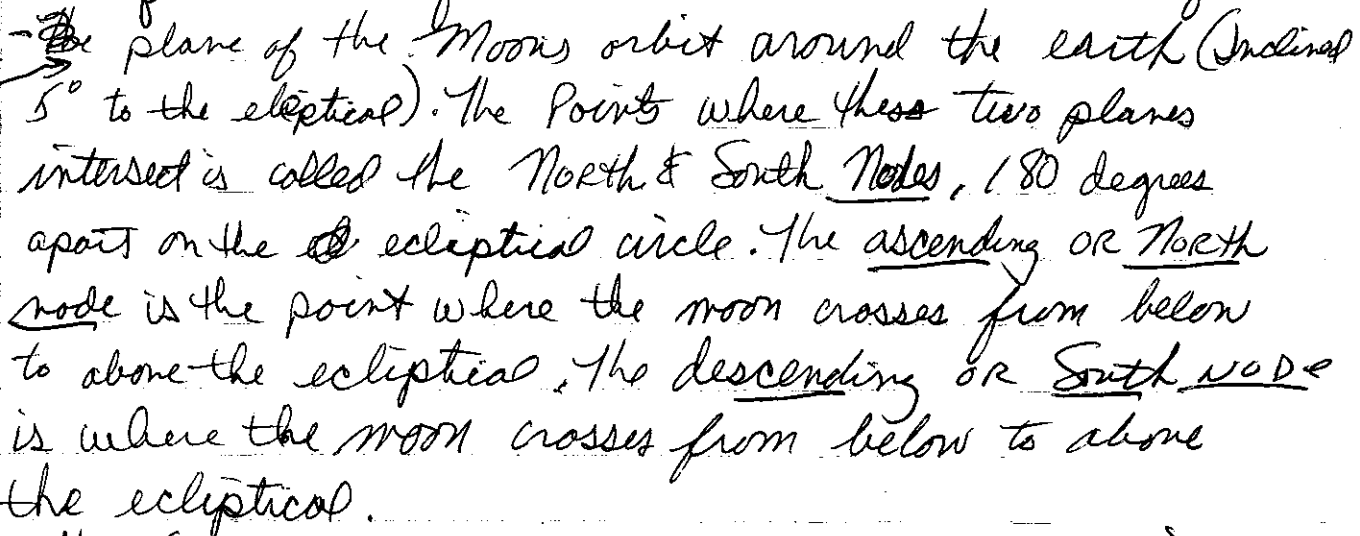 - The plane of the Moons orbit around the earth (Inclined
5° to the eleptical). The Points where these two planes
intersect is called the North & South Nodes, 180 degrees
apart on the ecliptical circle. The ascending OR North
node is the point where the moon crosses from below
to above the ecliptical. The descending OR South NODe
is where the moon crosses from below to above
the ecliptical.